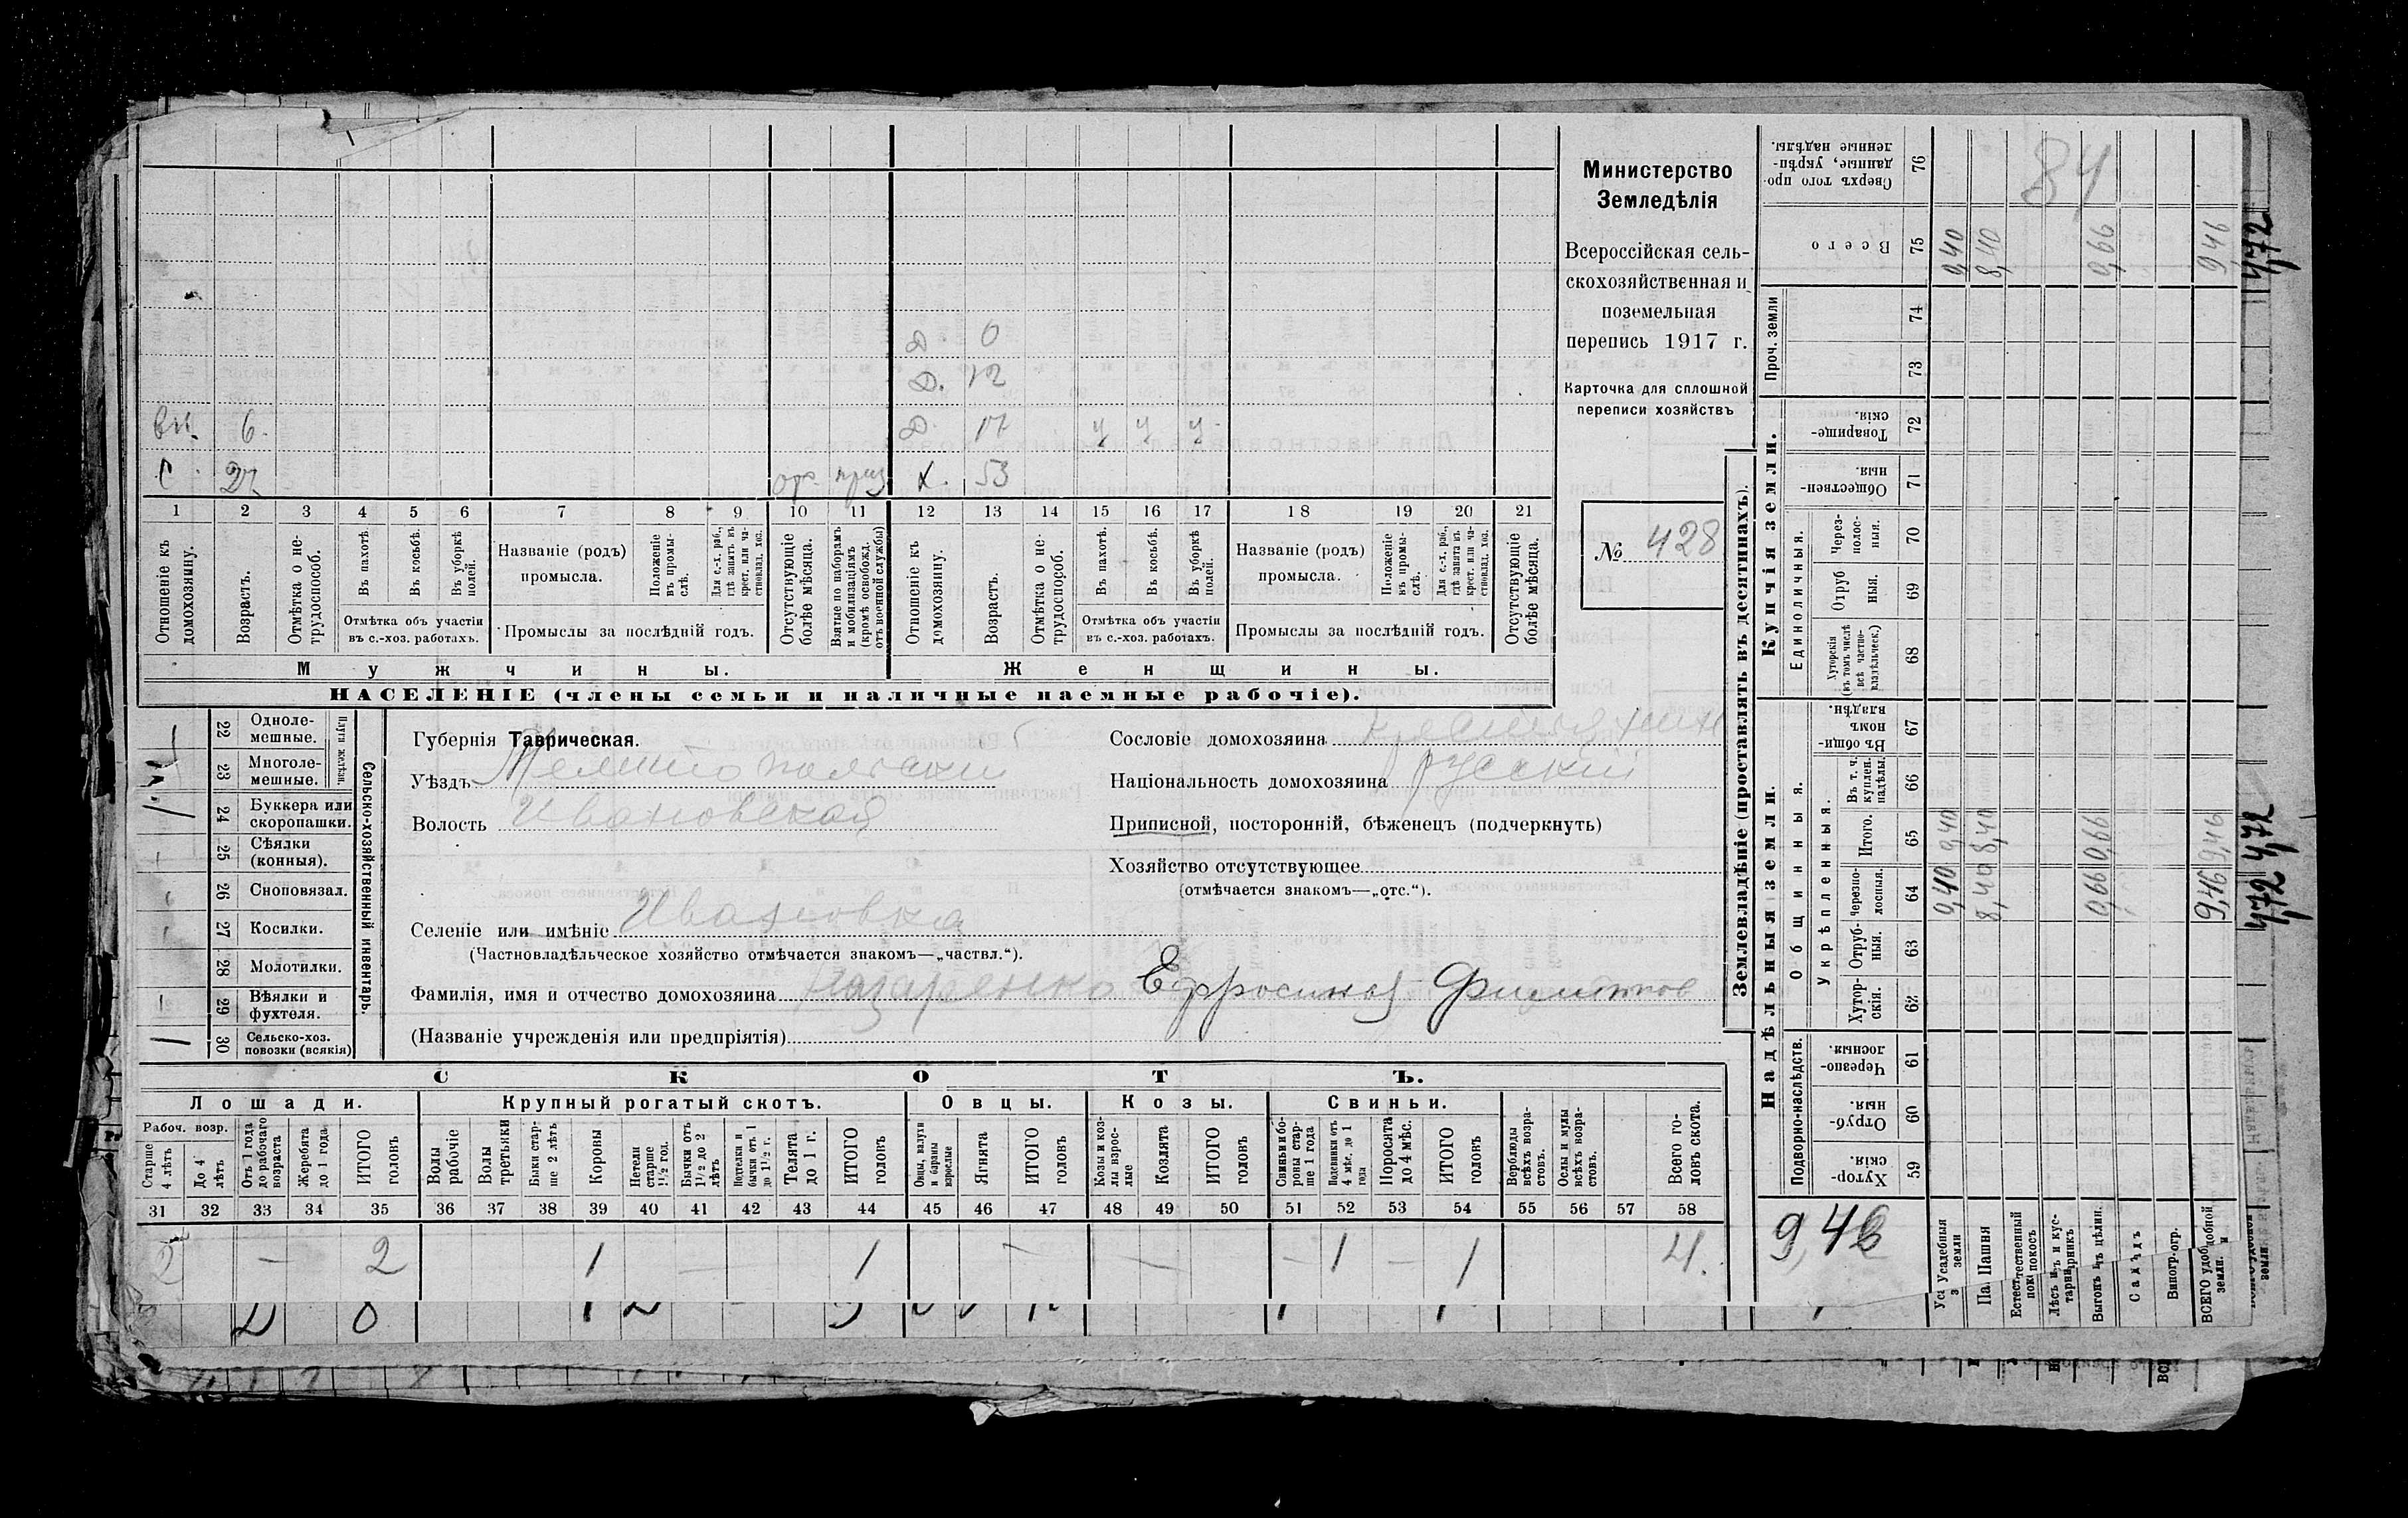 Министерство
Земледѣлія
Всероссійская сель-
скохозяйственная и
поземельная
перепись 1917 г.
Карточка для сплошной
переписи хозяйствъ
№ 428
Д. 0
Д. 12
вн. 6. Д. 17 ч ч ч
С. 27 отс. приз Х. 53
1 2 3 4 5 6 7 8 9 10 11 12 13 14 15 16 17 18 19 20 21
Отношеніе къ домохозяину.
Возрастъ.
Отмѣтка о не-трудоспособ.
Въ пахотѣ.
Въ косьбѣ.
Въ уборкѣ полей.
Отмѣтка объ участіи
въ с.-хоз. работахъ.
Названіе (родъ)
промысла.
Положеніе въ промы-слѣ.
Для с.-х. раб., гдѣ занятъ въ крест. или ча-стновлад. хоз.
Промыслы за послѣдній годъ.
Отсутствующіе болѣе мѣсяца.
Взятые по наборамъ и мобилизаціямъ (кромѣ освобожд. отъ военной службы)
Отношеніе къ домохозяину.
Возрастъ.
Отмѣтка о не-трудоспособ.
Въ пахотѣ.
Въ косьбѣ.
Въ уборкѣ полей.
Отмѣтка объ участіи
въ с.-хоз. работахъ.
Названіе (родъ)
промысла.
Положеніе въ промы-слѣ.
Для с.-х. раб., гдѣ занята въ крест. или ча-стновлад. хоз.
Промыслы за послѣдній годъ.
Отсутствующіе болѣе мѣсяца.
Мужчины.
Женщины.
НАСЕЛЕНІЕ (члены семьи и наличные наемные рабочіе).
Сельско-хозяйственный инвентарь.
Плуги желѣзн.
22 Одноле-мешные.
23 Многоле-мешные.
24 Буккера или скоропашки.
25 Сѣялки (конныя).
26 Сноповязал.
27 Косилки.
28 Молотилки.
29 Вѣялки и фухтеля.
30 Сельско-хоз. повозки (всякія)
Губернія Таврическая.
Уѣздъ Мелитопольский
Волость Ивановская
Селеніе или имѣніе Ивановка
(Частновладѣльческое хозяйство отмѣчается знакомъ—„частвл.“).
Фамилія, имя и отчество домохозяина Лазаренко Ефросинія Филиппов
(Названіе учрежденія или предпріятія)
Сословіе домохозяина крестьянин
Національность домохозяина русскій
Приписной, посторонній, бѣженецъ (подчеркнуть)
Хозяйство отсутствующее
(отмѣчается знакомъ—„отс.“).
СКОТЪ.
Лошади.
Крупный рогатый скотъ.
Овцы.
Козы.
Свиньи.
Рабоч. возр.
Старше 4 лѣтъ
До 4 лѣтъ
Отъ 1 года до рабочаго возраста
Жеребята до 1 года
ИТОГО головъ
Волы рабочіе
Волы третьяки
Быки стар-ше 2 лѣтъ
Коровы
Нетели старше 1½ год.
Бычки отъ 1½ до 2 лѣтъ
Подтелки и бычки отъ 1 до 1½ г.
Телята до 1 г.
ИТОГО головъ
Овцы, валухи и бараны взрослые
Ягнята
ИТОГО головъ
Козы и коз-лы взрос-лые
Козлята
ИТОГО головъ
Свиньи и бо-ровы стар-ше 1 года
Подсвинки отъ 4 мѣс. до 1 года
Поросята до 4 мѣс.
ИТОГО головъ
Верблюды всѣхъ возра-стовъ.
Ослы и мулы всѣхъ возра-стовъ.
Всего го-ловъ скота.
31 32 33 34 35 36 37 38 39 40 41 42 43 44 45 46 47 48 49 50 51 52 53 54 55 56 57 58
2 — 2 1 — 1 — — — 1 — 1 4.
Землевладѣніе (проставлять въ десятинахъ).
Надѣльныя земли.
Купчія земли.
Проч. земли
Подворно-наслѣдств.
Общинныя.
Укрѣпленныя.
Единоличныя.
Хутор-скія. 59
Отруб-ныя. 60
Черезпо-лосныя. 61
Хутор-скія. 62
Отруб-ныя. 63
Черезпо-лосныя. 64
Итого. 65
Въ т. ч. куплен. надѣлы. 66
Въ общи-номъ владѣн. 67
Хуторскія (въ томъ числѣ всѣ частно-владѣльческ.) 68
Отруб ныя. 69
Через-полос-ныя. 70
Обществен-ныя. 71
Товарище-скія. 72
73
74
Всего 75
Сверхъ того про-данные, укрѣп-ленные надѣлы. 76
84
0,40 0,40 0,40
8,40 8,40 8,40
0,66 0,66 0,66
9,46 9,46 9,46
4,72 4,73 4,72
9,46
Усадебныя земли
Пашня
Естественный покосъ
Лѣсъ и кус-тарникъ
Выгонъ
Садъ
Виногр.
ВСЕГО удобной земли.